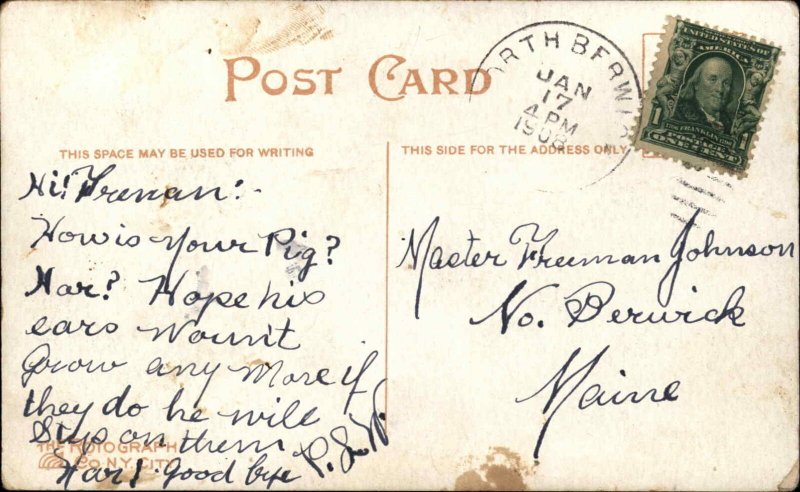 POST CARD
NORTH BERWICK
JAN
17
4 PM
1908
UNITED STATES OF
AMERICA
1 1
FRANKLIN
ONE CENT
THIS SPACE MAY BE USED FOR WRITING
THIS SIDE FOR THE ADDRESS ONLY
Hi! Freman!-
How is your Pig?
Har? Hope his
ears Wount
grow any More if
they do he will
Step on them
Har! Good bye P.
THE ROTOGRAPH
CO. N.Y. CITY
Master Freeman Johnson
No. Berwick
Maine